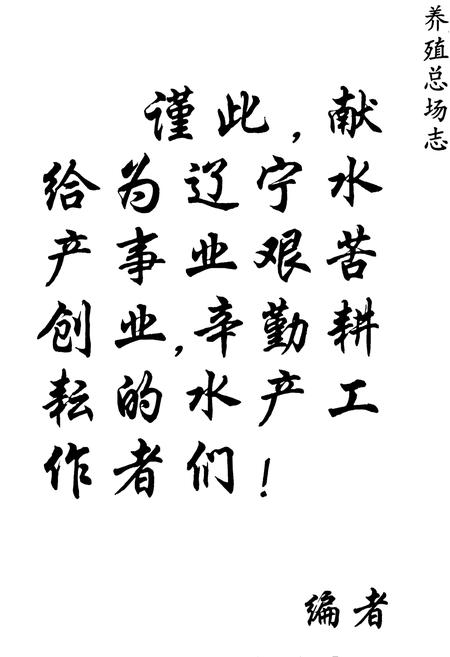 养殖总场志
谨此，献
给为辽宁水
产事业艰苦
创业，辛勤耕
耘的水产工
作者们！
编者